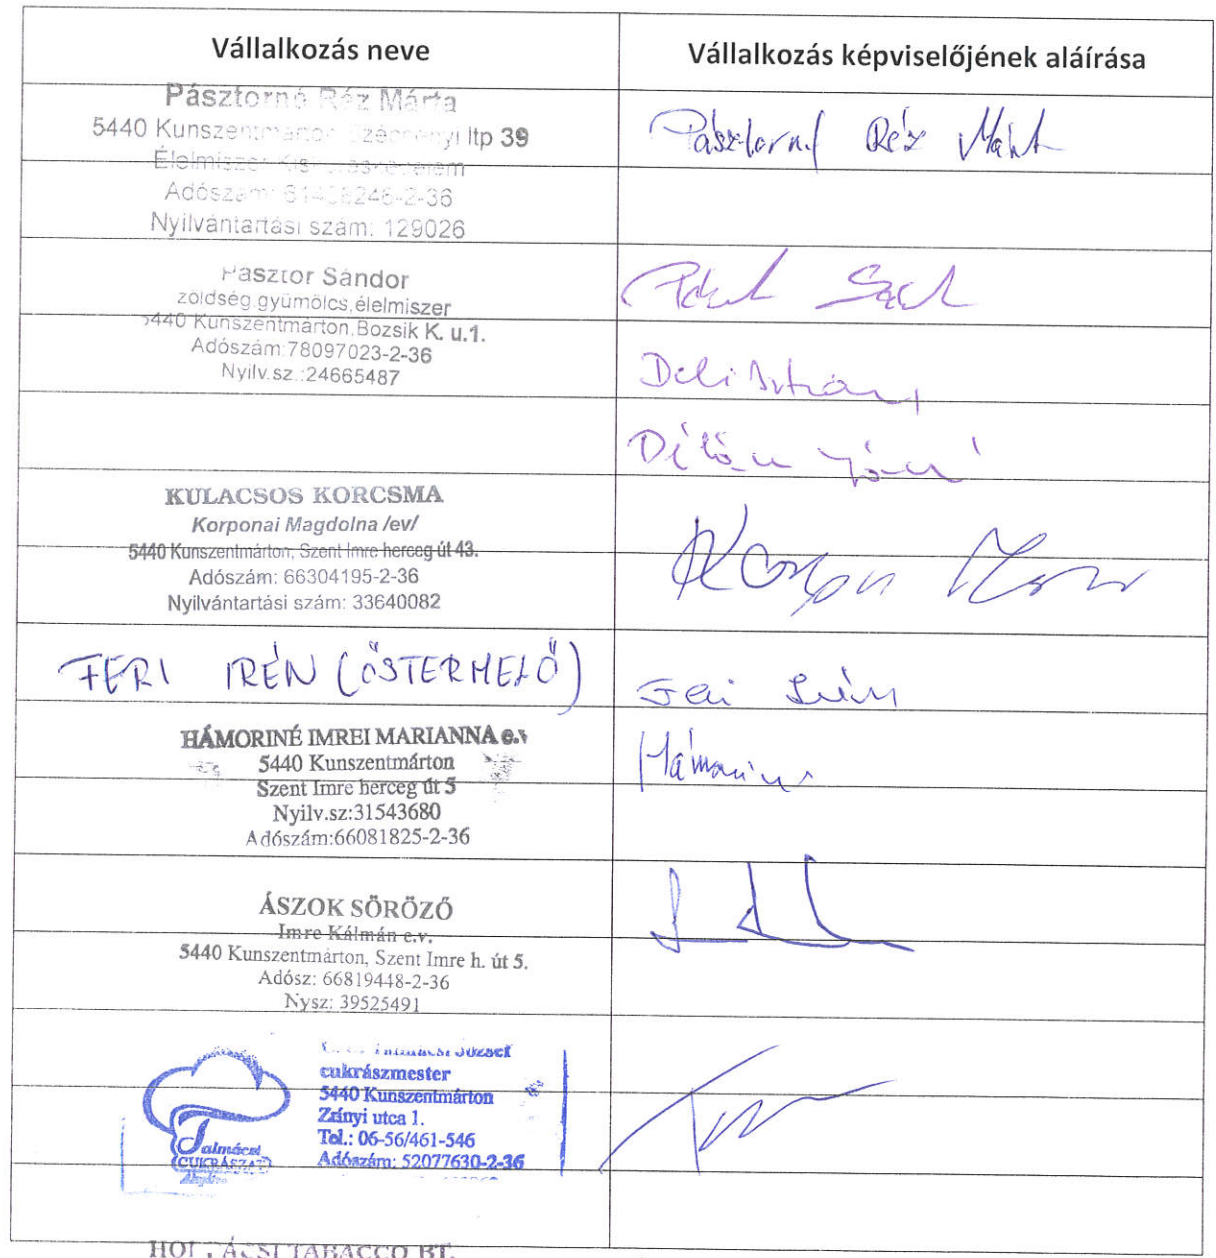 Vállalkozás neve
Vállalkozás képviselőjének aláírása
Pásztorné Réz Márta
5440 Kunszentmárton Széchenyi ltp 39
Élelmiszer Kiskereskedelem
Adószám: 246-2-36
Nyilvántartási szám: 129026
Pásztorné Réz Márt
Pásztor Sándor
zöldség,gyümölcs,élelmiszer
5440 Kunszentmárton,Bozsik K. u.1.
Adószám:78097023-2-36
Nyilv.sz.:24665487
Deli István
KULACSOS KORCSMA
Korponai Magdolna /ev/
5440 Kunszentmárton, Szent Imre herceg út 43.
Adószám: 66304195-2-36
Nyilvántartási szám: 33640082
FERI IRÉN (ŐSTERMELŐ)
Feri Irén
HÁMORINÉ IMREI MARIANNA e.v
5440 Kunszentmárton
Szent Imre herceg út 5
Nyilv.sz:31543680
Adószám:66081825-2-36
Hámoriné
ÁSZOK SÖRÖZŐ
Imre Kálmán e.v.
5440 Kunszentmárton, Szent Imre h. út 5.
Adósz: 66819448-2-36
Nysz: 39525491
Talmácsi József
cukrászmester
5440 Kunszentmárton
Zrínyi utca 1.
Tel.: 06-56/461-546
Adószám: 52077630-2-36
Talmácsi
CUKRÁSZAT
TABACCO BT.